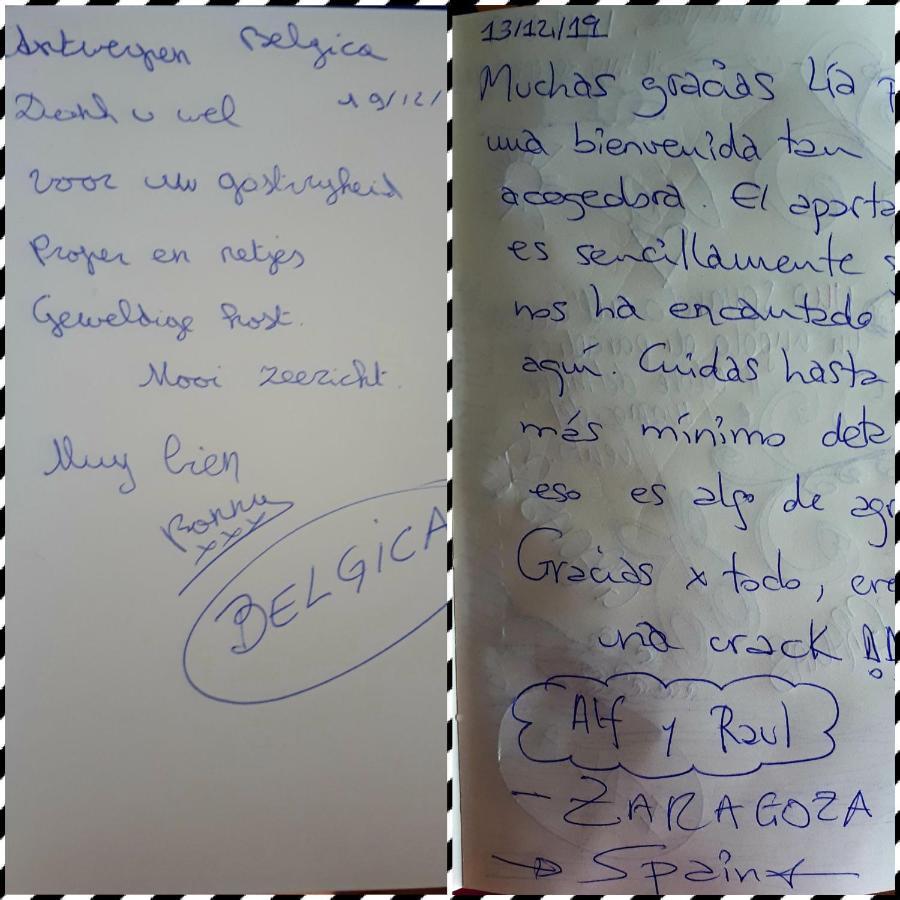 Antwerpen Belgica
Dank u wel 19/12/
voor uw gastvrijheid
Proper en netjes
Geweldige host.
Mooi zeezicht.
Muy bien
Ronny
xxx
BELGICA
13/12/19
Muchas gracias Lía
una bienvenida tan
acogedora. El aparta
es sencillamente
nos ha encantado
aquí. Cuidas hasta
más mínimo deta
eso es algo de agr
Gracias x todo, ere
una crack !!
Alf y Raul
- ZARAGOZA
Spain